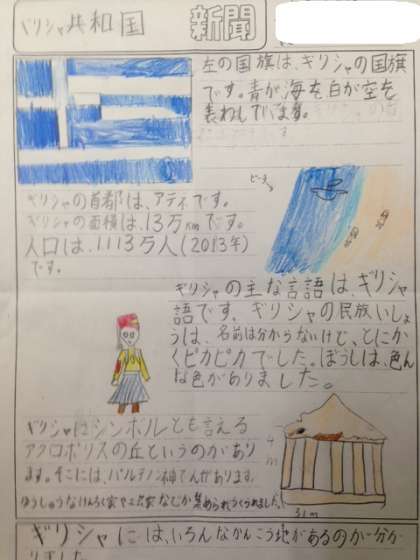 ギリシャ共和国
新聞
左の国旗は、ギリシャの国旗
です。青が海を白が空を
表わしています。
ビーチ
ギリシャの首都は、アテネです。
ギリシャの面積は、13万kmです。
人口は、1113万人(2013年)
です。
ギリシャの主な言語は、ギリシャ
語です。ギリシャの民族いしょ
うは、名前は分からないけど、とにか
くピカピカでした。ぼうしは、色ん
な色がありました。
ギリシャにはシンボルとも言える
アクロポリスの丘というのがあり
ます。そこには、パルテノン神でんがあります。
ゆうしゅうな
家や
家などが集められつくられました。
4m
31m
ギリシャには、いろんなかんこう地があるのが分か
りました